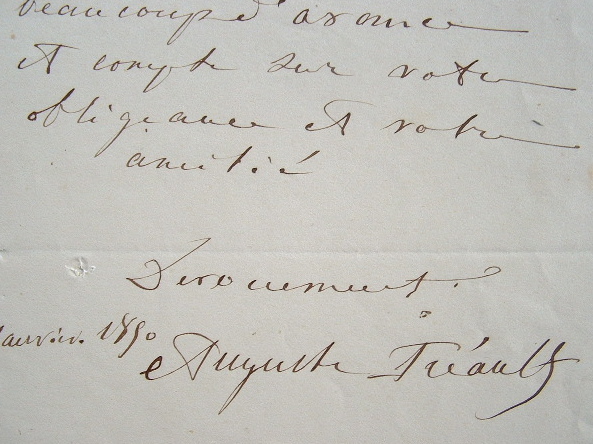 beaucoup d'avance
et compte sur votre
obligeance et votre
amitié
Devouement.
Janvier. 1850
Auguste Préault